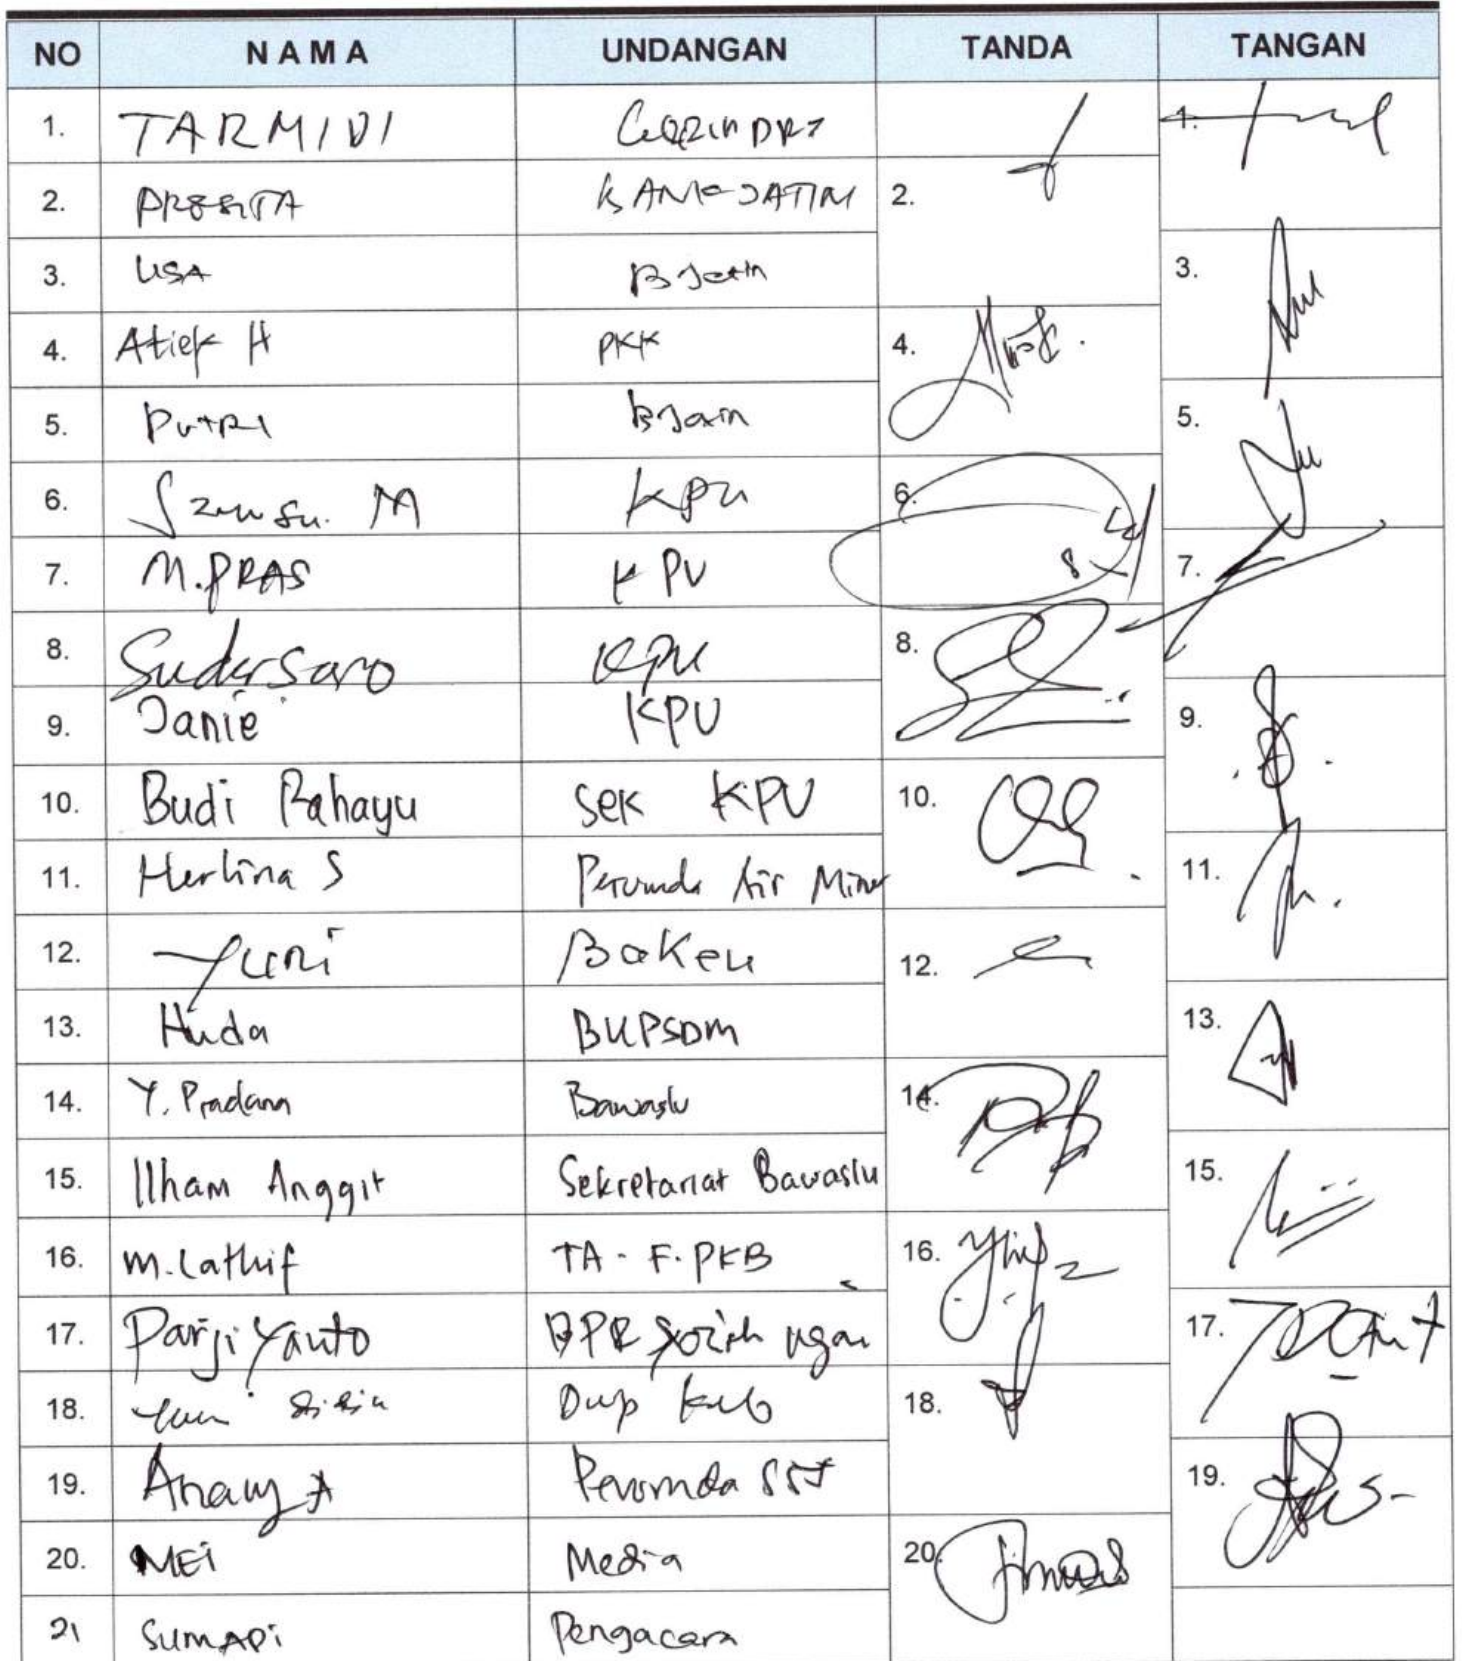 NO NAMA UNDANGAN TANDA TANGAN
1. TARMIDI 1.
2. BANK JATIM 2.
3. B Jatim 3.
4. Atiek H PKK 4.
5. PUTRI BJatim 5.
6. M KPU 6.
7. M.PRAS KPU 7.
8. Sudarsono KPU 8.
9. Janie KPU 9.
10. Budi Rahayu Sek KPU 10.
11. Herlina S Perumda Air Minum 11.
12. Yuni Bakeu 12.
13. Huda BKPSDM 13.
14. Y. Pradana Bawaslu 14.
15. Ilham Anggit Sekretariat Bawaslu 15.
16. M.Lathif TA - F. PKB 16.
17. Parjiyanto BPR 17.
18. 18.
19. Perumda 19.
20. MEi Media 20.
21 SUMADi Pengacara